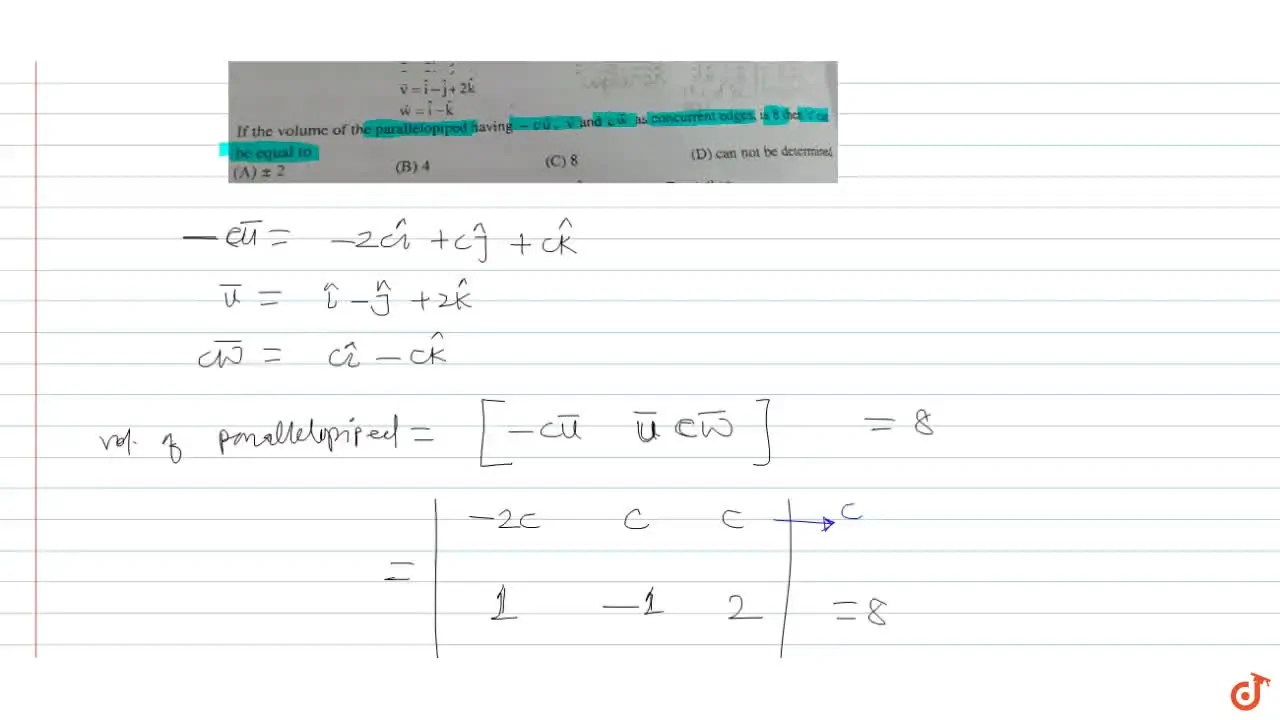 v̄ = î − ĵ + 2k̂
w̄ = î − k̂
If the volume of the parallelopiped having − cū, v̄ and c w̄ as concurrent edges, is 8 then 'c' can
be equal to
(A) ± 2 (B) 4 (C) 8 (D) can not be determined
−cū = −2cî + cĵ + ck̂
ū = î − ĵ + 2k̂
cw̄ = cî − ck̂
vol. of parallelopiped = [ −cū ū cw̄ ] = 8
= | −2c c c | → c
1 −1 2 = 8